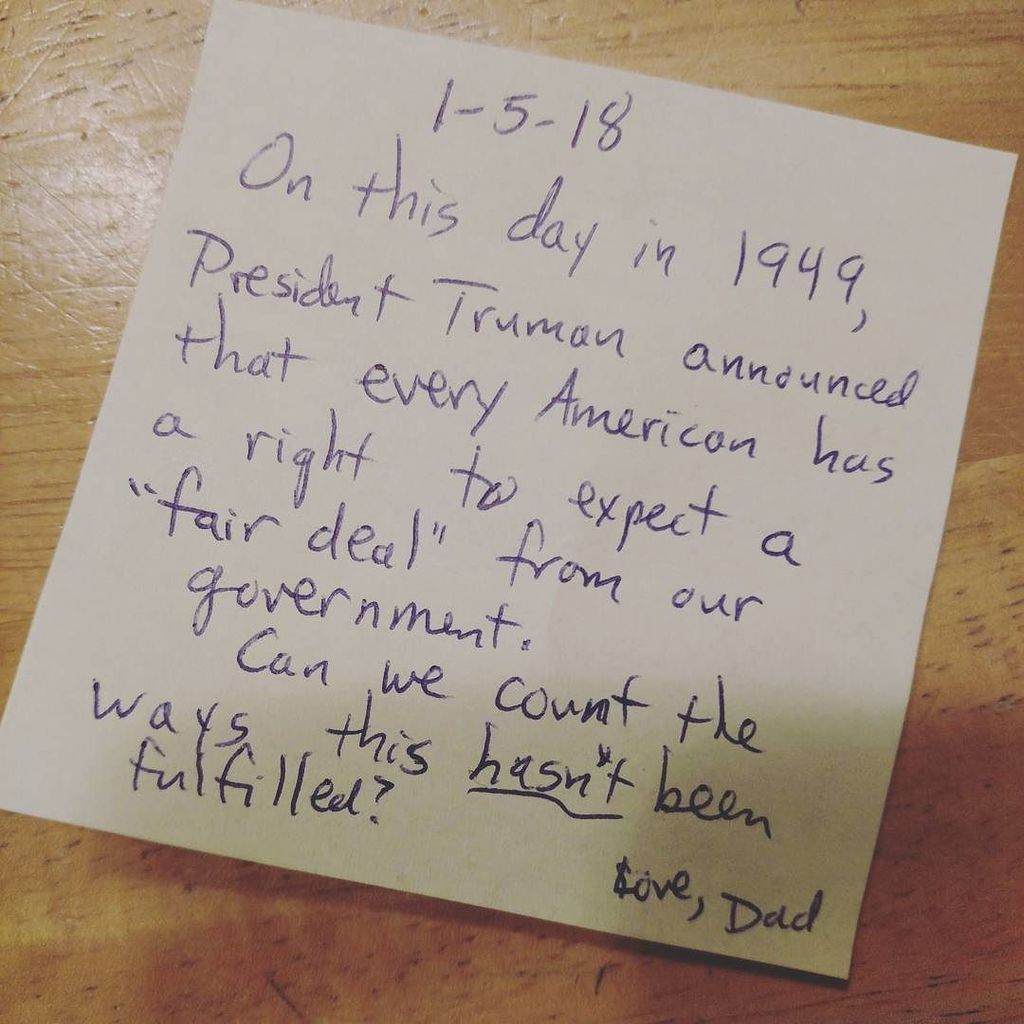 1-5-18
On this day in 1949,
President Truman announced
that every American has
a right to expect a
"fair deal" from our
government.
Can we count the
ways this hasn't been
fulfilled?
Love, Dad